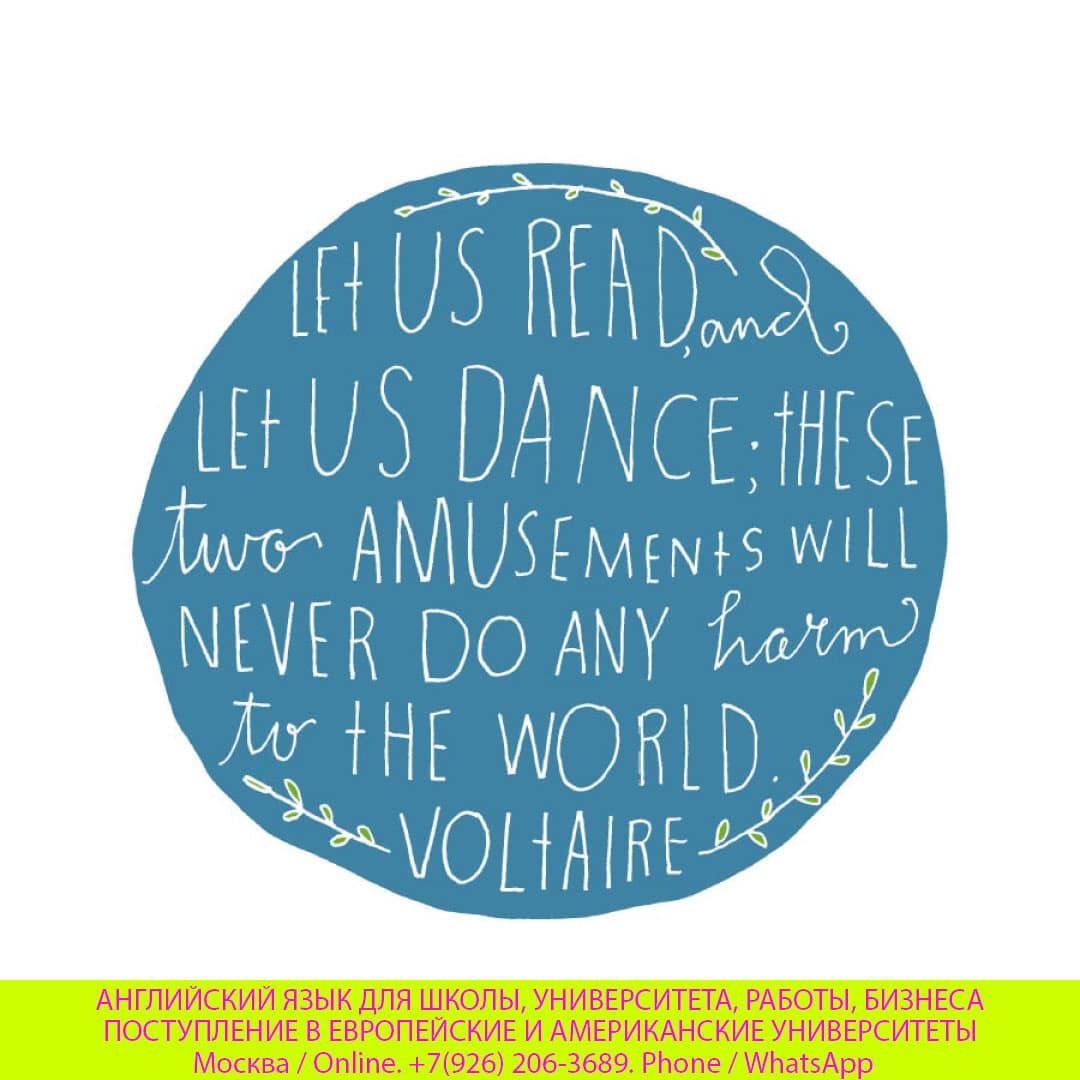 LEt US READ, and
LEt US DANCE; tHESE
two AMUSEMENtS WILL
NEVER DO ANY harm
to tHE WORLD.
VOLtAIRE
АНГЛИЙСКИЙ ЯЗЫК ДЛЯ ШКОЛЫ, УНИВЕРСИТЕТА, РАБОТЫ, БИЗНЕСА
ПОСТУПЛЕНИЕ В ЕВРОПЕЙСКИЕ И АМЕРИКАНСКИЕ УНИВЕРСИТЕТЫ
Москва / Online. +7(926) 206-3689. Phone / WhatsApp